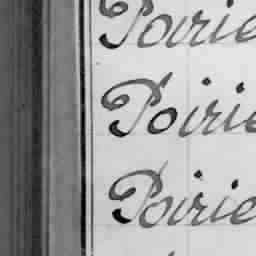 Poirie
Poirie
Poirie